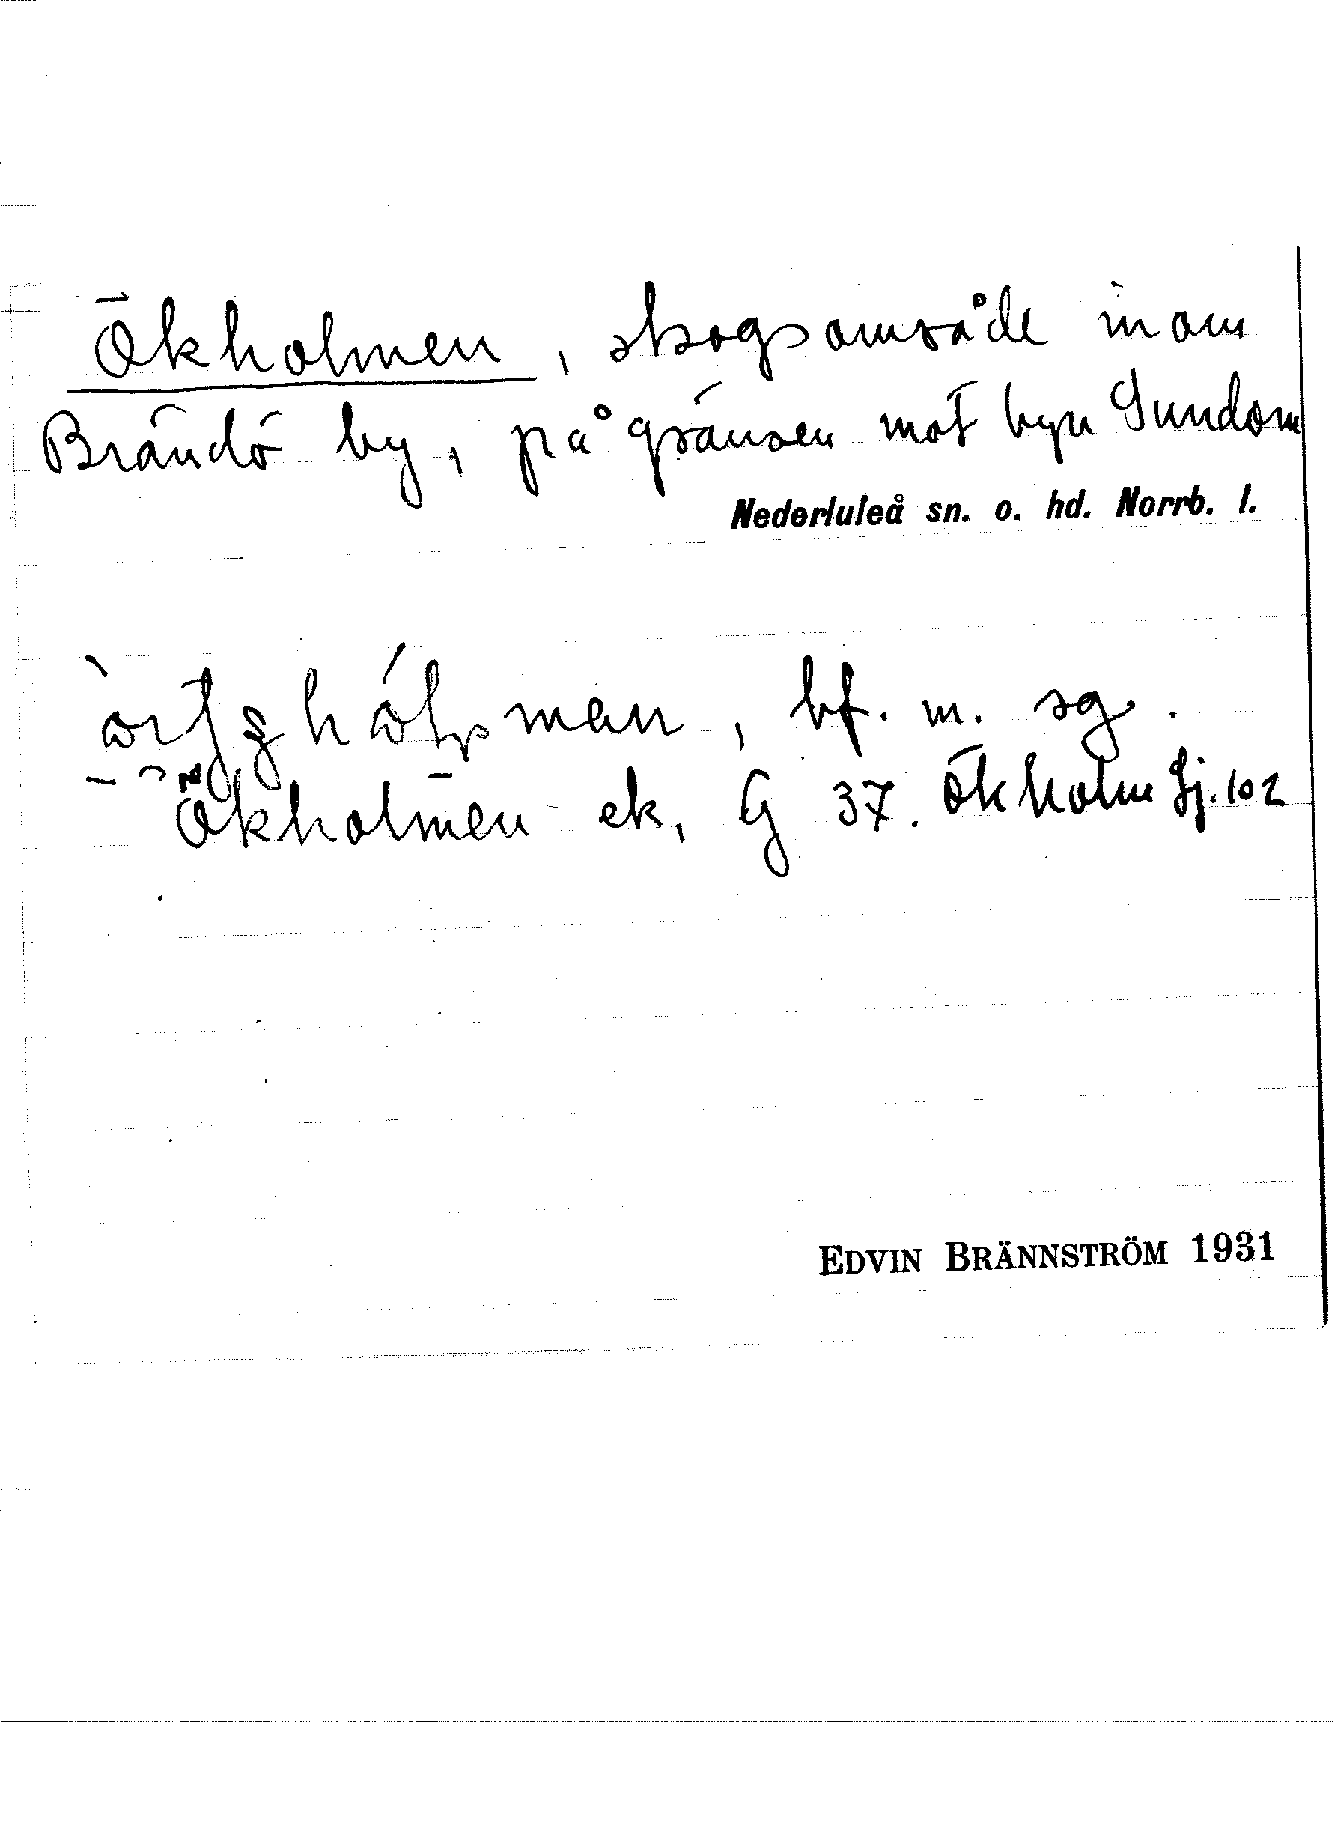 Ökholmen, skogsområde inom
Brändö by, på gränsen mot byn Sundom
Nederluleå sn. o. hd. Norrb. l.
bf. m. sg.
Ökholmen ek, G 37. Ökholm Lj. 102
EDVIN BRÄNNSTRÖM 1931